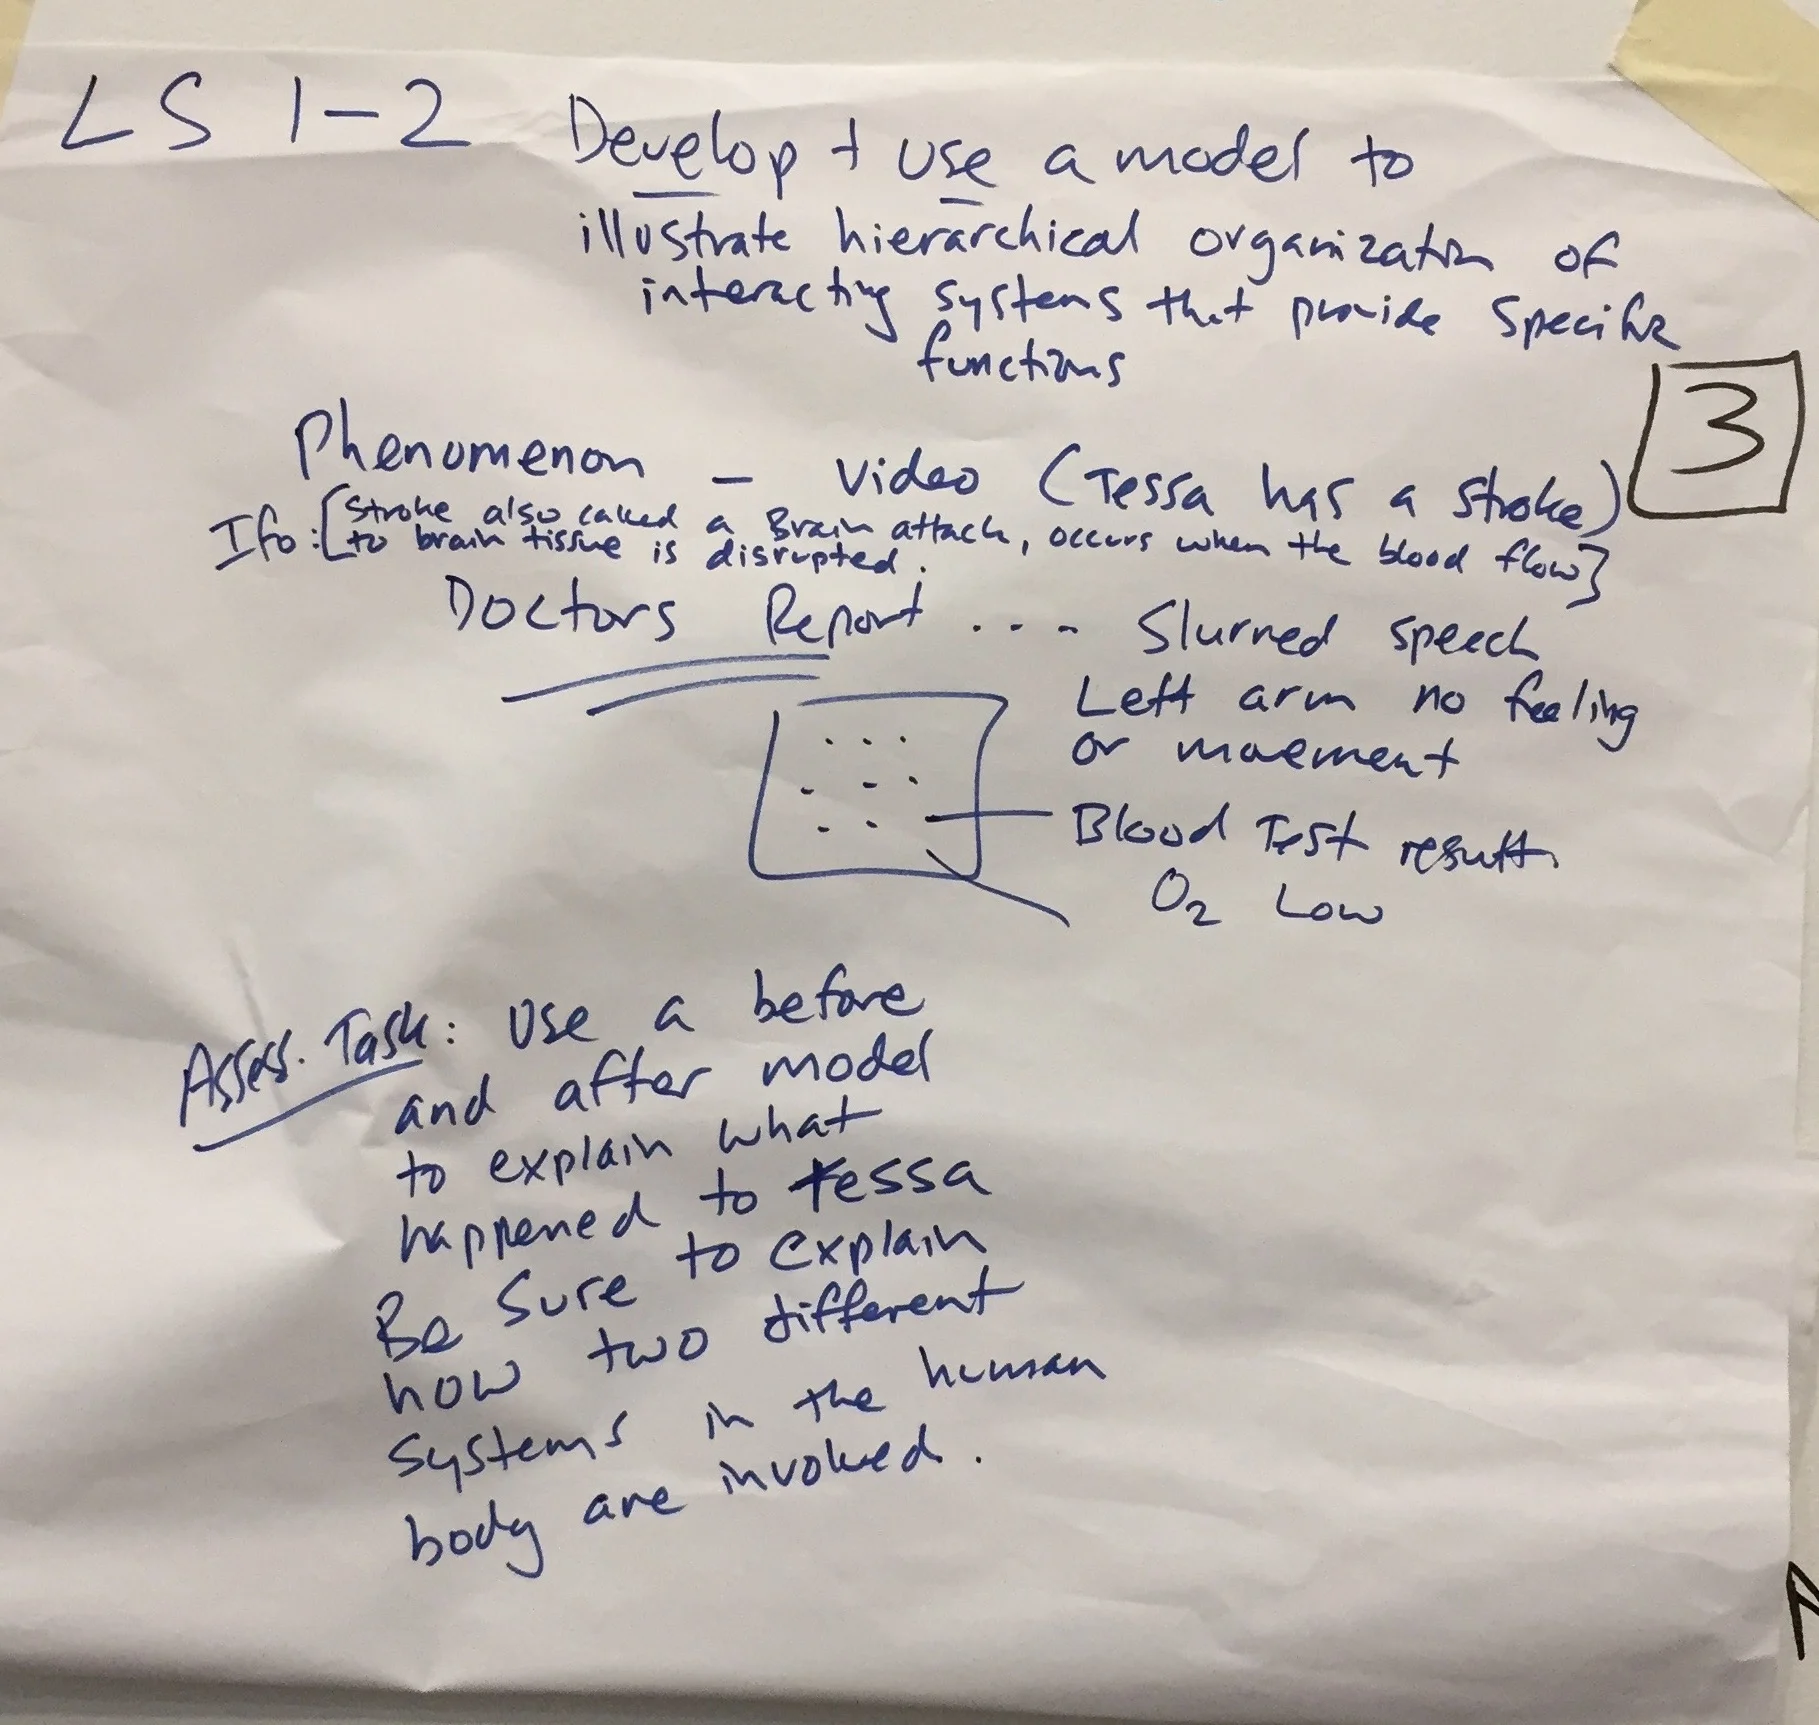 LS 1-2 Develop + use a model to
illustrate hierarchical organization of
interacting systems that provide specific
functions
3
Phenomenon - Video (Tessa has a stroke)
Ifo: [Stroke also called a Brain attack, occurs when the blood flow]
to brain tissue is disrupted.
Doctors Report .... Slurred speech
Left arm no feeling
or movement
Blood Test results
O2 Low
Asses. Task: Use a before
and after model
to explain what
happened to Tessa
Be Sure to explain
how two different
systems in the human
body are involved.